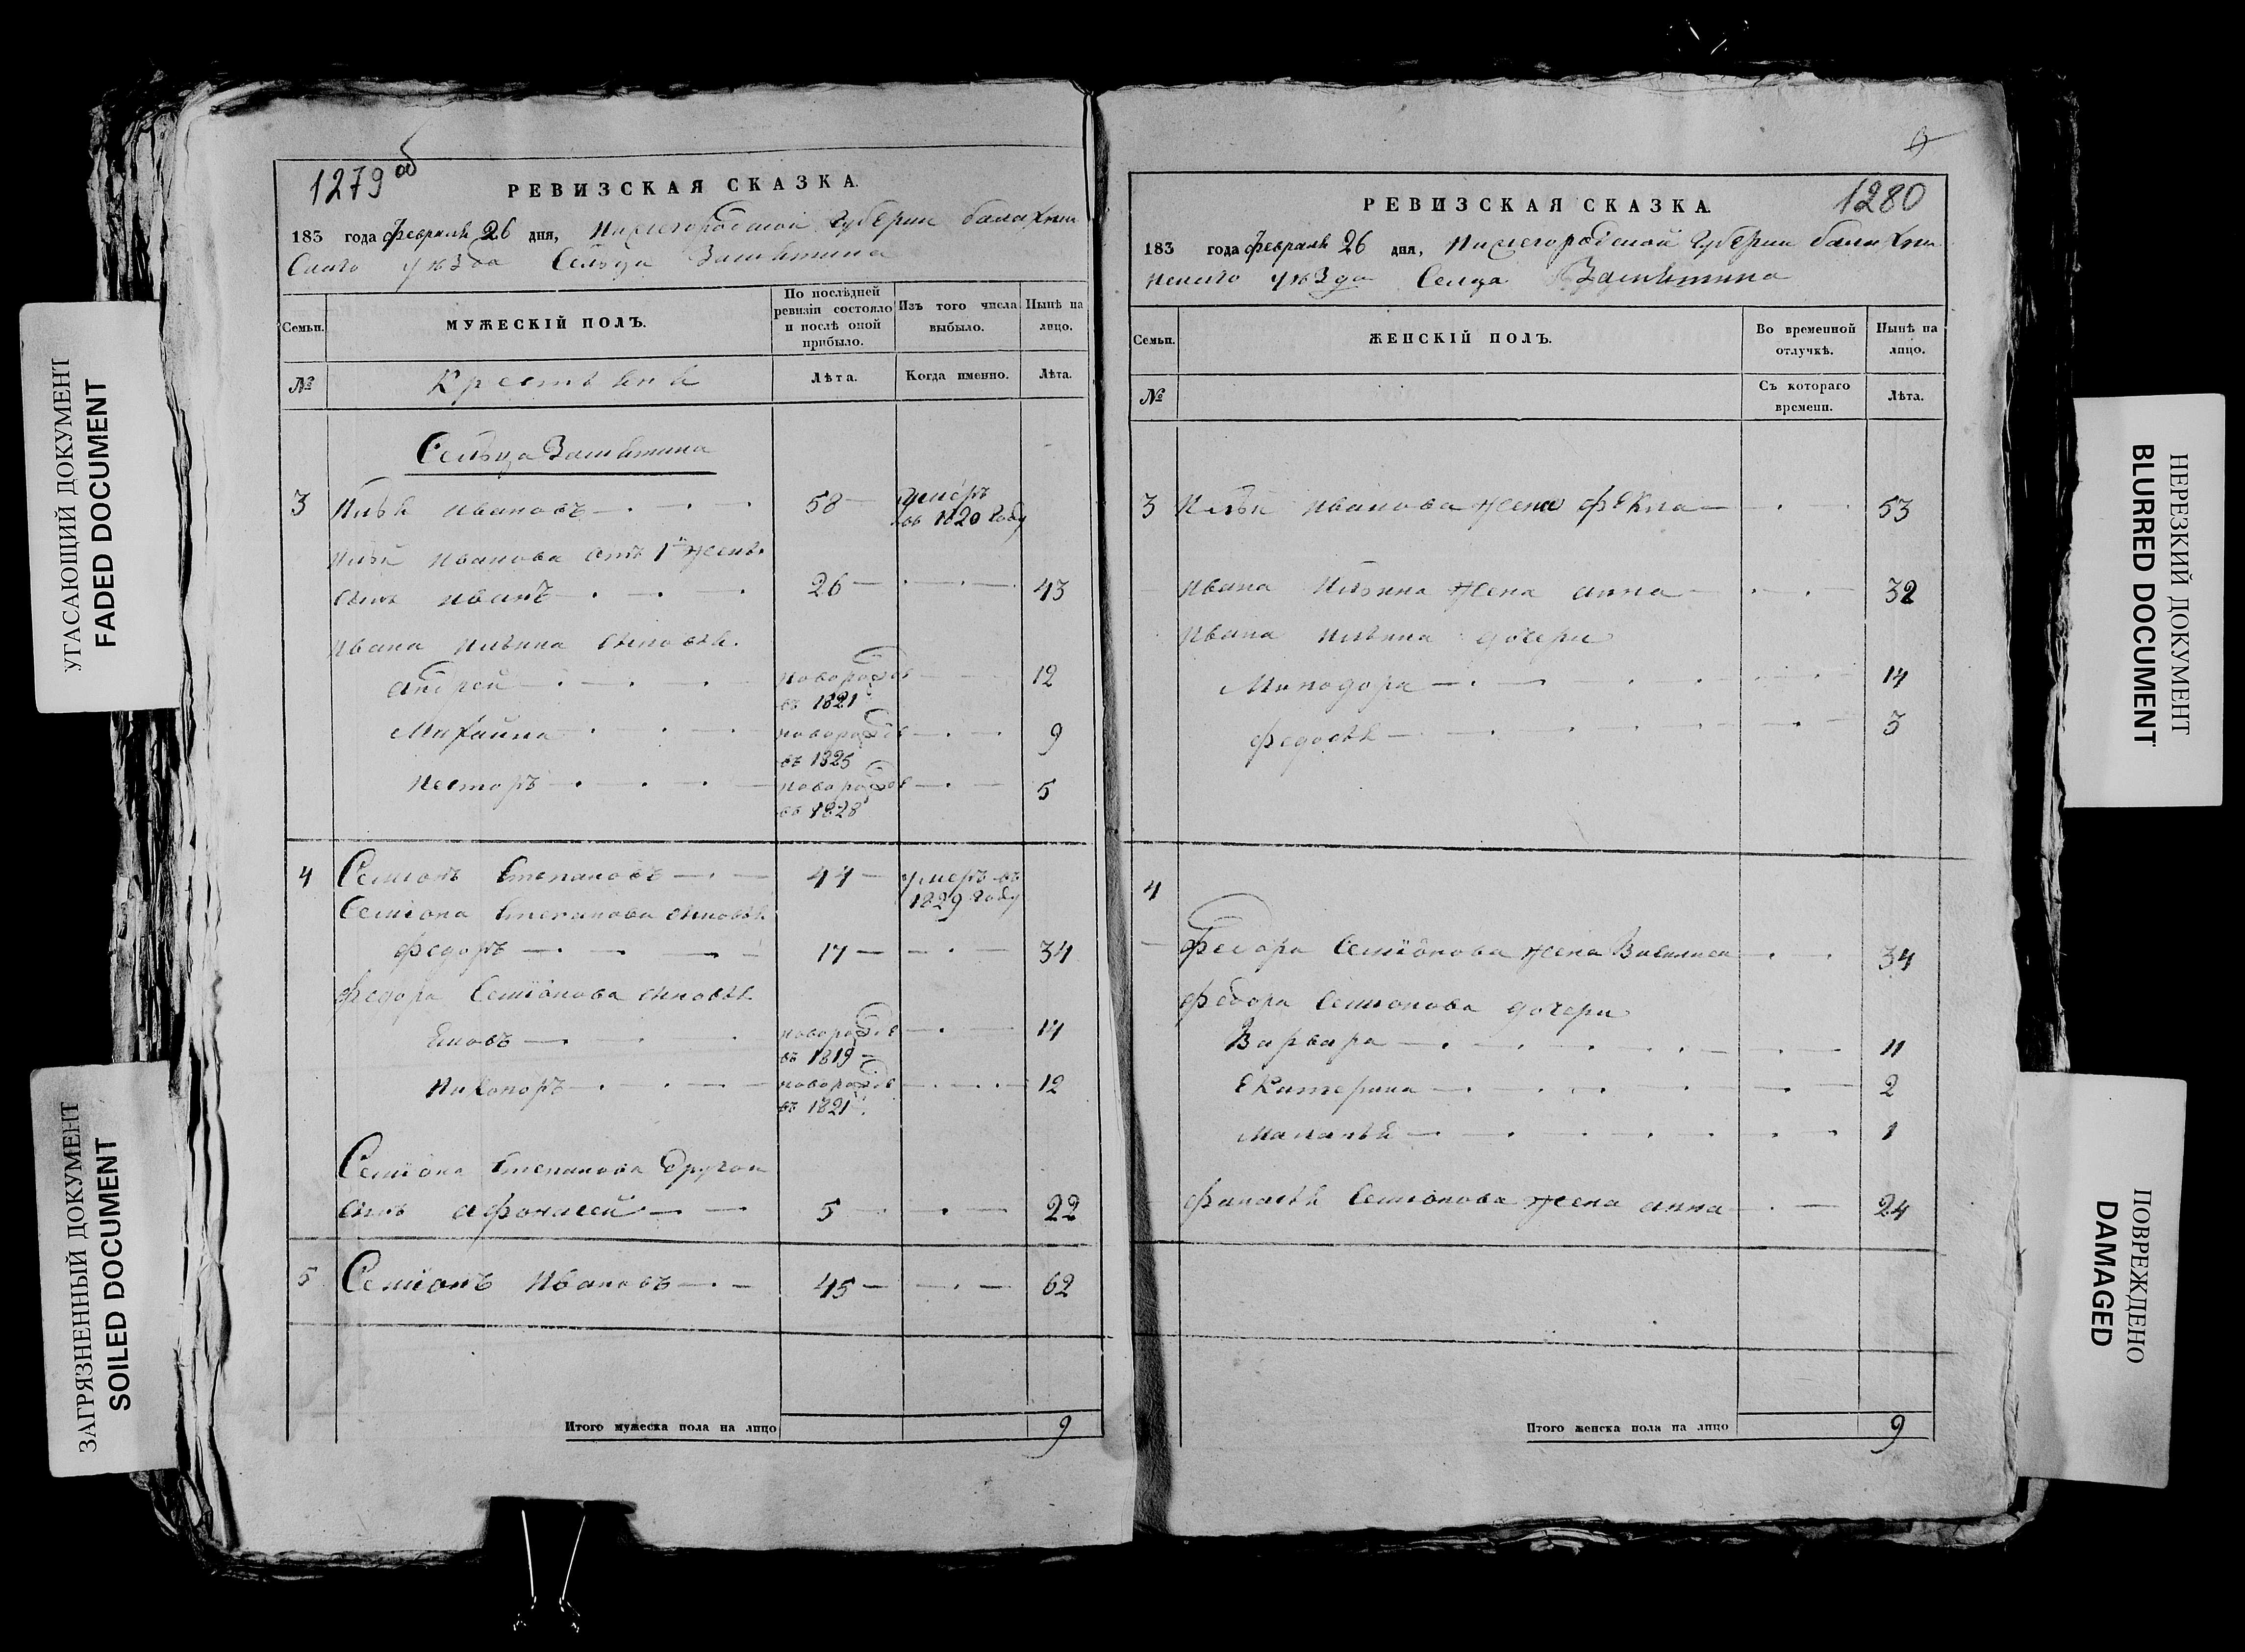 УГАСАЮЩИЙ ДОКУМЕНТ
FADED DOCUMENT
ЗАГРЯЗНЕННЫЙ ДОКУМЕНТ
SOILED DOCUMENT
1279 об
РЕВИЗСКАЯ СКАЗКА.
183 года февраля 26 дня, Нижегородской Губернии балахнин
Скаго уѣзда Сельца
Семьи. МУЖЕСКІЙ ПОЛЪ. По послѣдней ревизіи состояло и послѣ оной прибыло. Изъ того числа выбыло. Нынѣ на лицо.
№ Крестьяня Лѣта. Когда именно. Лѣта.
Сельца
3 Илья Ивановъ 58 умеръ въ 1820 году
Ильи Иванова отъ 1й жены
сынъ Иванъ 26 43
Ивана Ильина сыновья
Андрей новорожд в 1821 12
Михайла новорожд въ 1825 9
Несторъ новорожд въ 1828 5
4 Семіонъ Степановъ 44 умеръ въ 1829 году
Семіона Степанова сыновья
Федоръ 17 34
Федора Семіонова сыновья
новорожд въ 1819 14
Никоноръ новорожд въ 1821 12
Семіона Степанова другой
сынъ Афонасей 5 22
5 Семіонъ Ивановъ 45 62
Итого мужеска пола на лицо 9
1280
РЕВИЗСКАЯ СКАЗКА.
183 года февраля 26 дня, Нижегородской Губернии балахнин
нскаго уѣзда Селца
Семьи. ЖЕНСКІЙ ПОЛЪ. Во временной отлучкѣ. Нынѣ на лицо.
№ Съ котораго времени. Лѣта.
3 Ильи Иванова жена Фекла 53
Ивана Ильина жена анна 32
Ивана Ильина дочери
Минодора 14
Федосья 3
4
Федора Семіонова жена Василиса 34
Федора Семионова дочери
Варвара 11
Екатерина 2
Маланья 1
Фанасья Семіонова жена анна 24
Итого женска пола на лицо 9
НЕРЕЗКИЙ ДОКУМЕНТ
BLURRED DOCUMENT
ПОВРЕЖДЕНО
DAMAGED